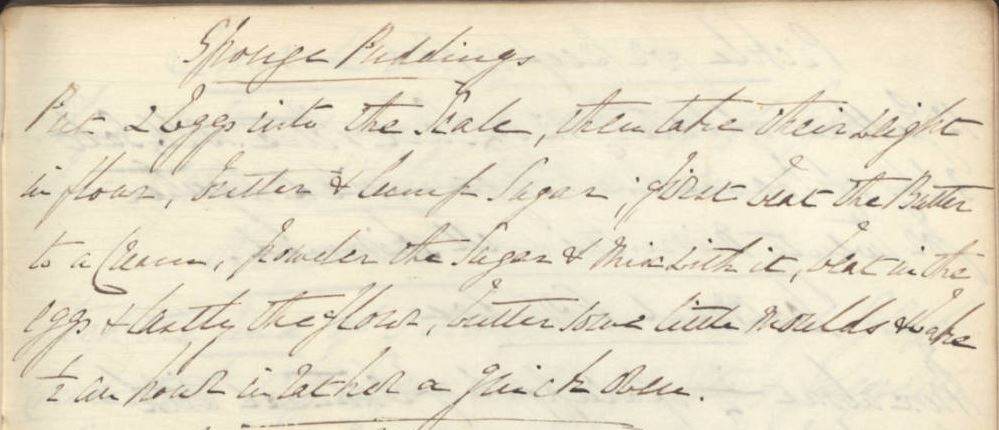 Sponge Puddings
Put 2 Eggs into the Scale, then take their weight
in flour, butter & lump Sugar; first beat the Butter
to a Cream, powder the Sugar & mix with it, beat in the
eggs & lastly the flour, butter some little moulds & bake
½ an hour in rather a quick oven.